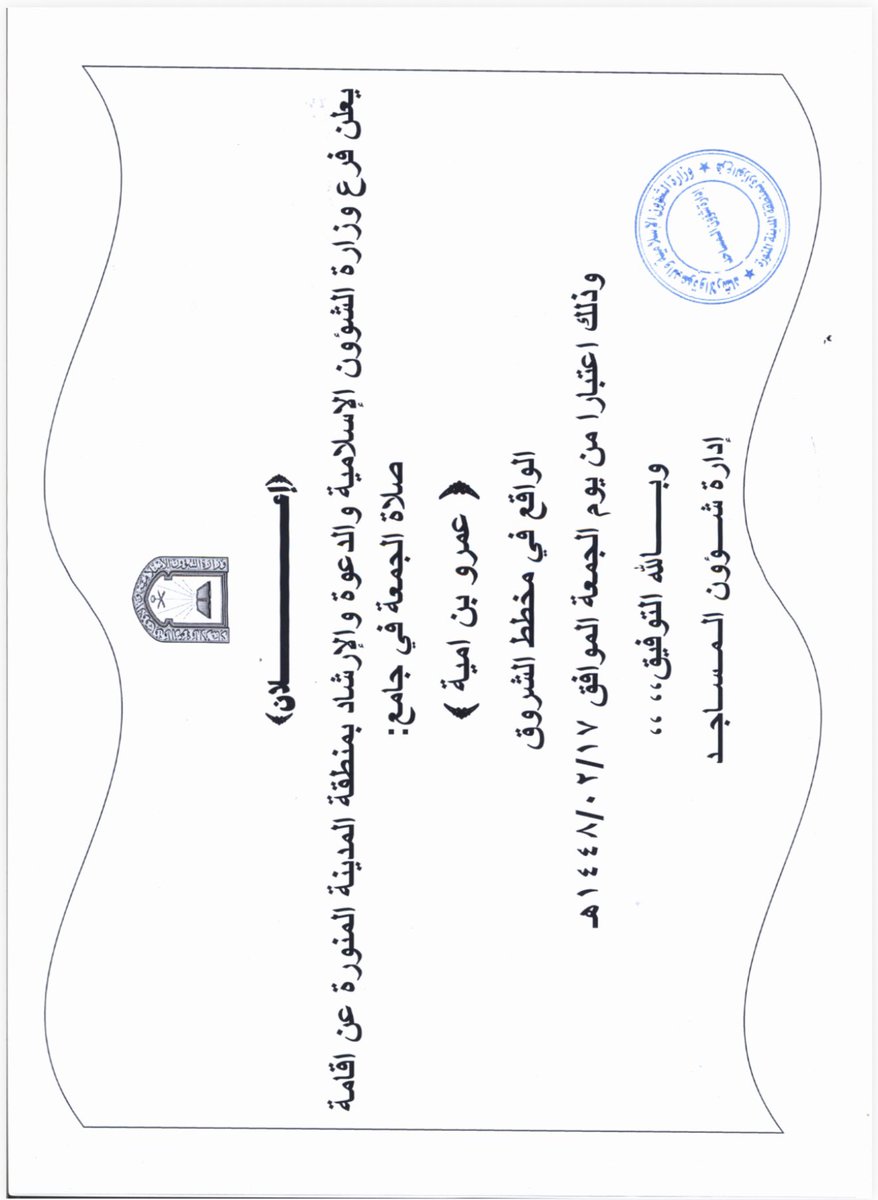 (إعـــــــــــلان)
يعلن فرع وزارة الشؤون الإسلامية والدعوة والإرشاد بمنطقة المدينة المنورة عن اقامة
صلاة الجمعة في جامع:
( عمرو بن امية )
الواقع في مخطط الشروق
وذلك اعتبارا من يوم الجمعة الموافق ١٤٤٨/٠٢/١٧هـ
وبـــــالله التوفيق،،، ،،
إدارة شـــؤون الـمـســاجـد
وزارة الشؤون الإسلامية والدعوة والإرشاد